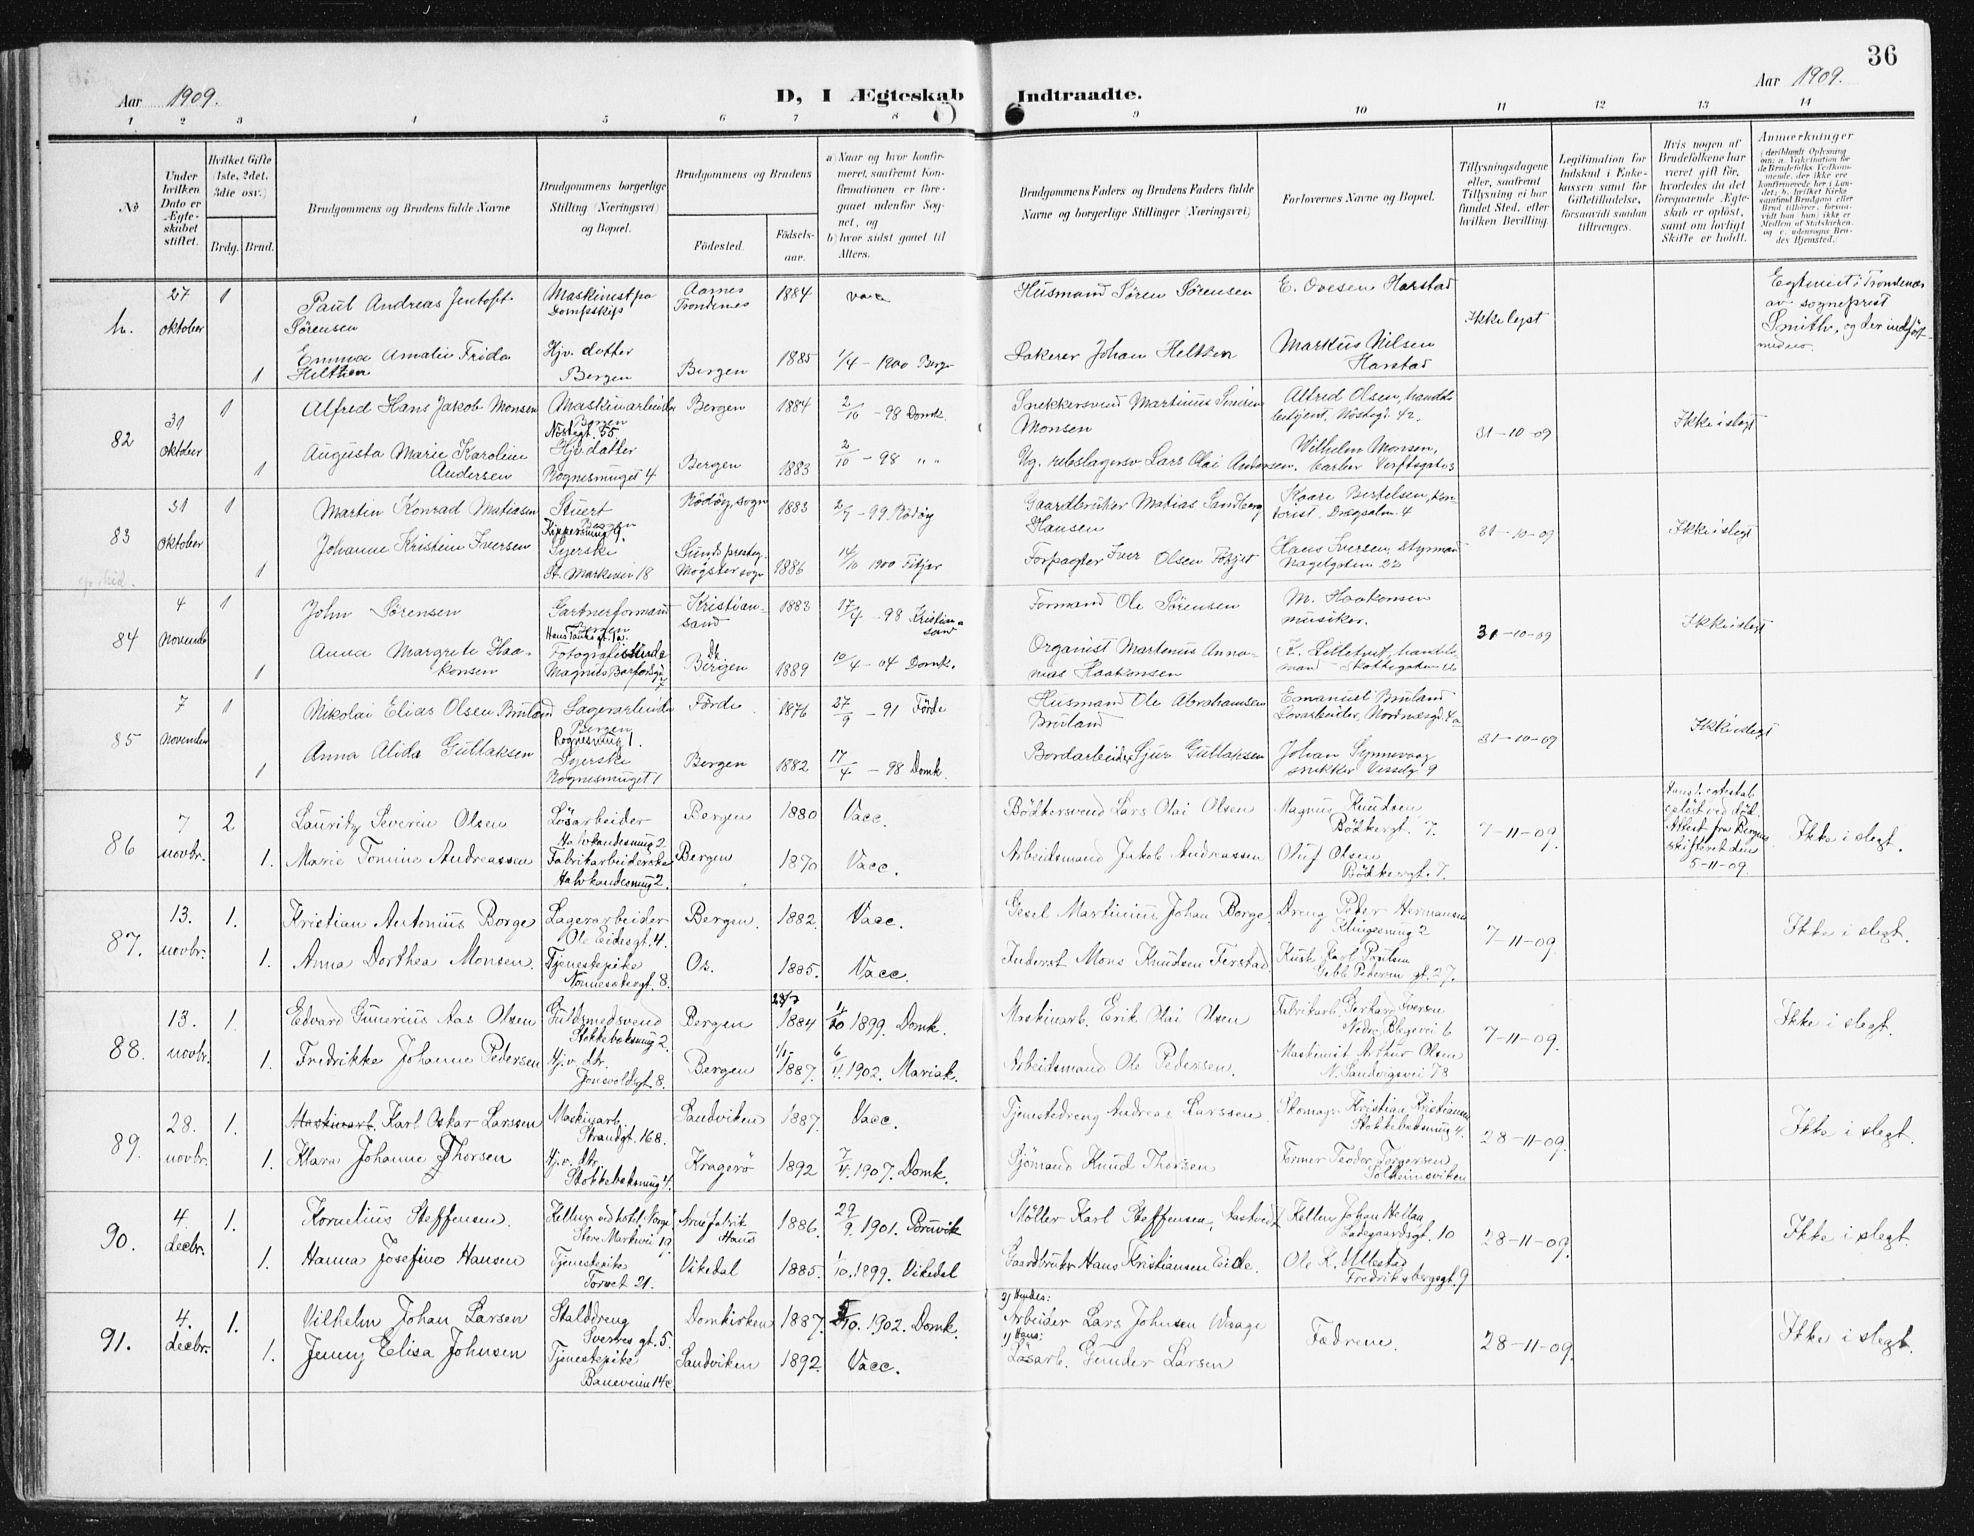 36
Aar 1909.
D, I Ægteskab Indtraadte.
Aar 1909.
1 2 3 4 5 6 7 8 9 10 11 12 13 14
No
Under hvilken Dato er Ægteskabet stiftet.
Hvilket Gifte (1ste, 2det, 3die osv.)
Brdg. Brud.
Brudgommens og Brudens fulde Navne
Brudgommens borgerlige Stilling (Næringsvei) og Bopæl.
Brudgommens og Brudens
Fødested.
Fødselsaar.
a) Naar og hvor konfirmeret, saafremt Konfirmationen er foregaaet udenfor Sognet, og
b) hvor sidst gaaet til Alters.
Brudgommens Faders og Brudens Faders fulde Navne og borgerlige Stillinger (Næringsvei)
Forlovernes Navne og Bopæl.
Tillysningsdagene eller, saafremt Tillysning ei har fundet Sted, efter hvilken Bevilling.
Legitimation for Indskud i Enkekassen samt for Giftetilladelse, forsaavidt saadan tiltrænges.
Hvis nogen af Brudefolkene har været gift før, hvorledes da det foregaaende Ægteskab er opløst, samt om lovligt Skifte er holdt.
Anmerkninger
h. 27 oktober 1
Paul Andreas Jentoft Sørensen
Maskinist paa Dampskip
Aarnes Trondenes 1884 vacc
Husmand Søren Sørensen
E. Ovesen Harstad
Ikke lyst
Egteviet i Trondenes av sogneprest Smith, og der indført
1 Emma Amalie Frida Helthen
Hjv. datter Bergen
Bergen 1885 1/4 - 1900 Berge
Johan Heltzen
Markus Nilsen Harstad
82 31 oktober 1
Alfred Hans Jakob Monsen
Maskinarbeider Bergen Nøstegt. 55
Bergen 1884 2/10 - 98 Domk.
Snekkersvend Martinus Monsen
Alfred Olsen, Nøstegt. 42.
31-10-09
Ikke i slegt
1 Augusta Marie Karoline Andersen
Hjv. datter Rognesmuget 4
Bergen 1883 2/10 - 98 " "
Ug. rebslagersv Lars Olai Andersen.
Wilhelm Monsen,
83 31 oktober 1
Martin Konrad Matiasen
Stuert Bergen
Rödöy sogn 1883 2/9 - 99 Rödöy
Gaardbruker Matias Sandberg Hansen
Kaare Bertelsen, kontorist, Dregsalm. 4
31-10-09
Ikke i slegt
1 Johanne Kristine Iversen
Syerske St. Markevei 18
Sunds prestg. Møgster sogn 1886 14/10 1900 Fitjar
Forpagter Iver Olsen
Hans Iversen, styrmand Nagelgaten 22
84 4 november 1
John Sørensen
Gartnerformand Bergen Hans Tanks gt.
Kristiansand 1883 17/4 - 98 Kristiansand
Formand Ole Sørensen
M. Haakonsen musiker.
31-10-09
Ikke i slegt
1 Anna Margrete Haakonsen
Magnus Barfodsgt. 7
Bergen 1889 10/4 - 04 Domk.
Organist Martinus Annanias Haakonsen
K. Lilletvet, handelsmand - Skottegaten
85 7 november 1
Nikolai Elias Olsen Bruland
Lagerarbeider Bergen Rognesmug 1.
Förde 1876 27/9 - 91 Förde
Husmand Ole Abrahamsen Bruland
Emanuel Bruland
31-10-09
Ikke i slegt
1 Anna Alida Gullaksen
Syerske Rognesmuget 1
Bergen 1882 17/4 - 98 Domk.
Bordarbeider Sjur Gullaksen
Johan Synnevaag snikker Vesselg 9
86 7 novbr. 2
Lauritz Severin Olsen
Løsarbeider Halvkandesmug 2
Bergen 1880 Vacc.
Bødkersvend Lars Olai Olsen
Magnus Knudsen Bødkergt. 7.
7-11-09.
5-11-09.
Ikke i slegt.
1. Marie Tomine Andreassen
Fabrikarbeiderske Halvkandesmug 2.
Bergen 1870 Vacc.
Arbeidsmand Jakob Andreassen
Oluf Olsen Bødkergt. 7.
87. 13. novbr. 1.
Kristian Antonius Borge
Lagerarbeider Ole Eidesgt. 4.
Bergen. 1882. Vacc.
Gesel Martinius Johan Borge
Dreng Peter Hermansen Klingesmug 2
7-11-09.
Ikke i slegt.
1. Anna Dorthea Monsen.
Tjenestepike Nonnesætergt. 8.
Os. 1885. Vacc.
Inderst Mons Knudsen Ferstad
Kusk Karl Paulsen Gebb Pedersen gt. 27.
88. 13. novbr. 1.
Edvard Gunerius Aas Olsen
Guldsmedsvend Stokkebaksmug 2.
Bergen 23/7 1884 1899. Domk.
Maskinarb. Erik Olai Olsen
Fabrikarb. Gerhard Iversen Nedre Blegevei 6
7-11-09.
Ikke i slegt.
1. Fredrikke Johanne Pedersen
Hj.v. dtr. Jonsvoldsgt. 8.
Bergen 1887. 6/4. 1902. Mariak.
Arbeidsmand Ole Pedersen.
Maskinist Arthur Olsen N. Sandvigsvei 78
89. 28. novbr. 1.
Maskinarb. Karl Oskar Larssen
Maskinarb. Strandgt. 168.
Sandviken 1887. Vacc.
Tjenestedreng Andreas Larssen
Skomagr. Kristian Kristiansen Stokkebaksmug 4.
28-11-09.
Ikke i slegt.
1. Klara Johanne Thorsen
Hj.v. dtr. Stokkebaksmug 4.
Kragerö 1892 7/4. 1907. Domk.
Sjömand Knud Thorsen
Former Teodor Torgersen Solheimsviken
90. 4. decbr. 1.
Kornelius Steffensen.
Kellner ved hotel Norge Store Markvei 19.
Arnefabrik Haus 1886. 29/9. 1901.
Møller Karl Steffensen,
Kellner Johan Hellan, Ladegaardsgt. 10
28-11-09.
Ikke i slegt.
1. Hanna Josefine Hansen
Tjenestepike Torvet 21.
Vikedal 1885. 1/10. 1899. Vikedal
Gaardbruker Hans Kristiansen Eide.
Ole K. Ullestad Fredriksbergsgt. 9
91. 4. decbr. 1.
Vilhelm Johan Larsen
Stalddreng Sverres gt. 5.
Domkirken 1887. 5/10. 1902. Domk.
2) Hendes:
Arbeider Lars Johnsen
Fædrene.
28-11-09.
Ikke i slegt.
1. Jenny Elisa Johnsen
Tjenestepike Baneveien 14c
Sandviken 1892. Vacc.
1) Hans:
Løsarb. Gunder Larsen